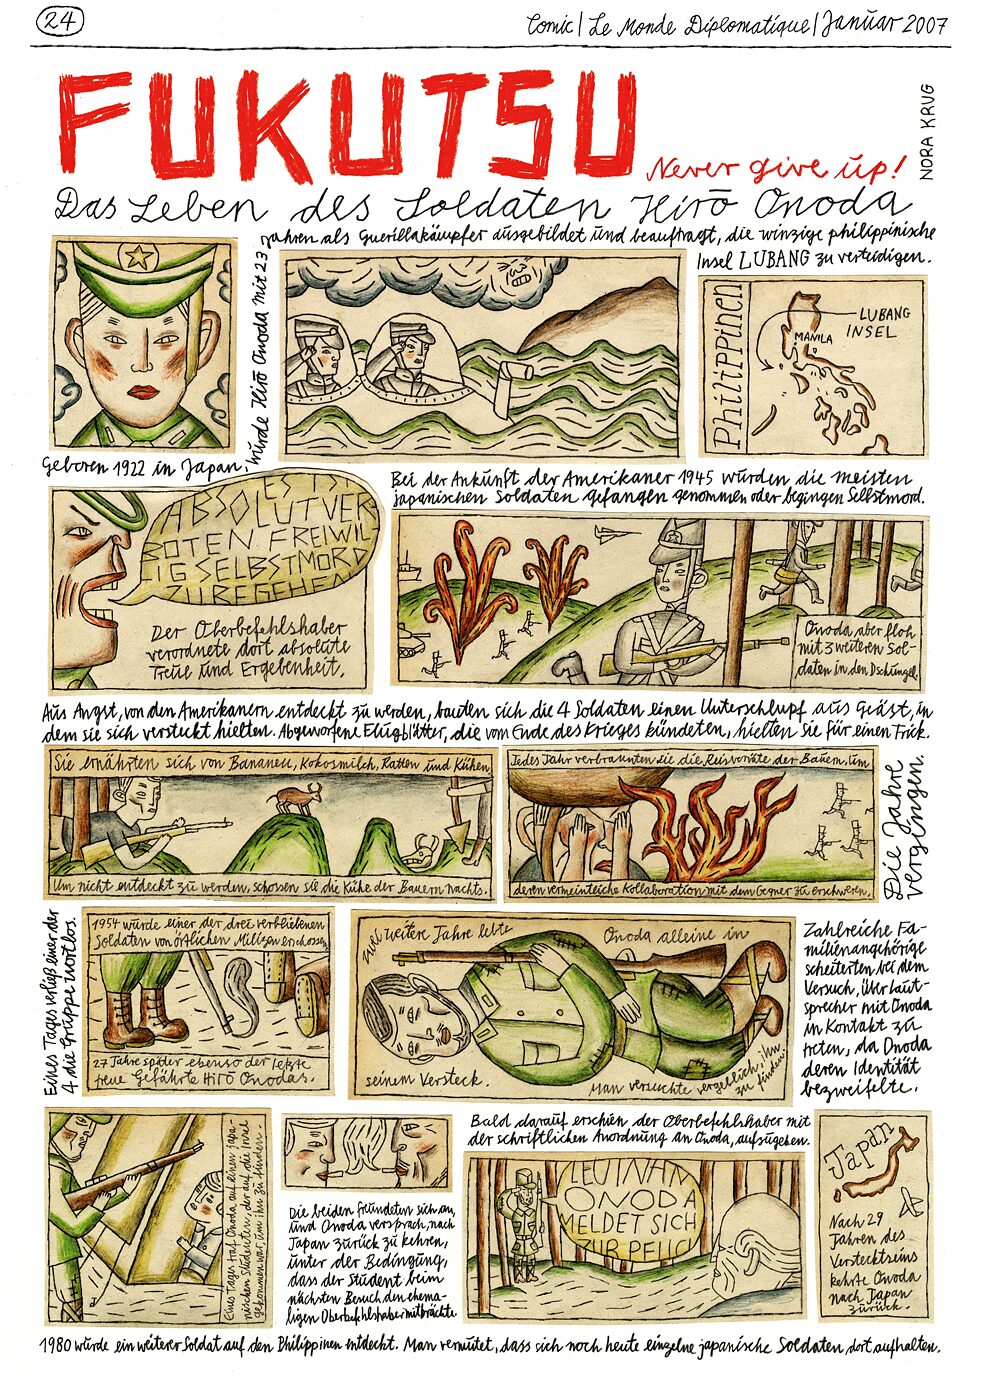 24
Comic | Le Monde Diplomatique | Januar 2007
FUKUTSU
Never give up!
NORA KRUG
Das Leben des Soldaten Hirō Onoda
Geboren 1922 in Japan,
wurde Hirō Onoda mit 23
Jahren als Guerillakämpfer ausgebildet und beauftragt, die winzige philippinische
Insel LUBANG zu verteidigen.
Philippinen
LUBANG
INSEL
MANILA
ES IST
ABSOLUT VER
BOTEN FREIWIL
LIG SELBSTMORD
ZU BEGEHEN
Der Oberbefehlshaber
verordnete dort absolute
Treue und Ergebenheit.
Bei der Ankunft der Amerikaner 1945 wurden die meisten
japanischen Soldaten gefangen genommen oder begingen Selbstmord.
Onoda aber floh
mit 3 weiteren Sol-
daten in den Dschungel.
Aus Angst, von den Amerikanern entdeckt zu werden, bauten sich die 4 Soldaten einen Unterschlupf aus Geäst, in
dem sie sich versteckt hielten. Abgeworfene Flugblätter, die vom Ende des Krieges kündeten, hielten sie für einen Trick.
Sie ernährten sich von Bananen, Kokosmilch, Ratten und Kühen.
Um nicht entdeckt zu werden, schossen sie die Kühe der Bauern nachts.
Jedes Jahr verbrannten sie die Reisvorräte der Bauern, um
deren vermeintliche Kollaboration mit dem Gegner zu erschweren.
Die Jahre
vergingen.
Eines Tages verließ einer der
4 die Gruppe wortlos.
1954 wurde einer der drei verbliebenen
Soldaten von örtlichen Milizen erschossen,
27 Jahre später ebenso der letzte
treue Gefährte Hirō Onodas.
Zwei weitere Jahre lebte
Onoda alleine in
seinem Versteck.
Man versuchte vergeblich, ihn
zu finden.
Zahlreiche Fa-
milienangehörige
scheiterten bei dem
Versuch, über Laut-
sprecher mit Onoda
in Kontakt zu
treten, da Onoda
deren Identität
bezweifelte.
Eines Tages traf Onoda auf einen japa-
nischen Studenten, der auf die Insel
gekommen war, um ihn zu finden.
Die beiden freundeten sich an,
und Onoda versprach, nach
Japan zurück zu kehren,
unter der Bedingung,
dass der Student beim
nächsten Besuch den ehema-
ligen Oberbefehlshaber mitbrächte.
Bald darauf erschien der Oberbefehlshaber mit
der schriftlichen Anordnung an Onoda, aufzugeben.
LEUTNANT
ONODA
MELDET SICH
ZUR PFLICHT
Japan
Nach 29
Jahren des
Versteckseins
kehrte Onoda
nach Japan
zurück.
1980 wurde ein weiterer Soldat auf den Philippinen entdeckt. Man vermutet, dass sich noch heute einzelne japanische Soldaten dort aufhalten.